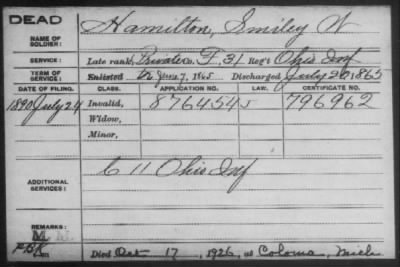 DEAD
NAME OF SOLDIER: Hamilton, Smiley N
SERVICE: Late rank, Private Co. F, 31 Reg't Ohio Inf
TERM OF SERVICE: Enlisted June 7, 1865 Discharged July 20, 1865
DATE OF FILING. CLASS. APPLICATION NO. LAW. CERTIFICATE NO.
1890 July 24 Invalid, 876454 S 796962
Widow,
Minor,
ADDITIONAL SERVICES: C 11 Ohio Inf
REMARKS:
Died Oct 17, 1926, at Coloma, Mich